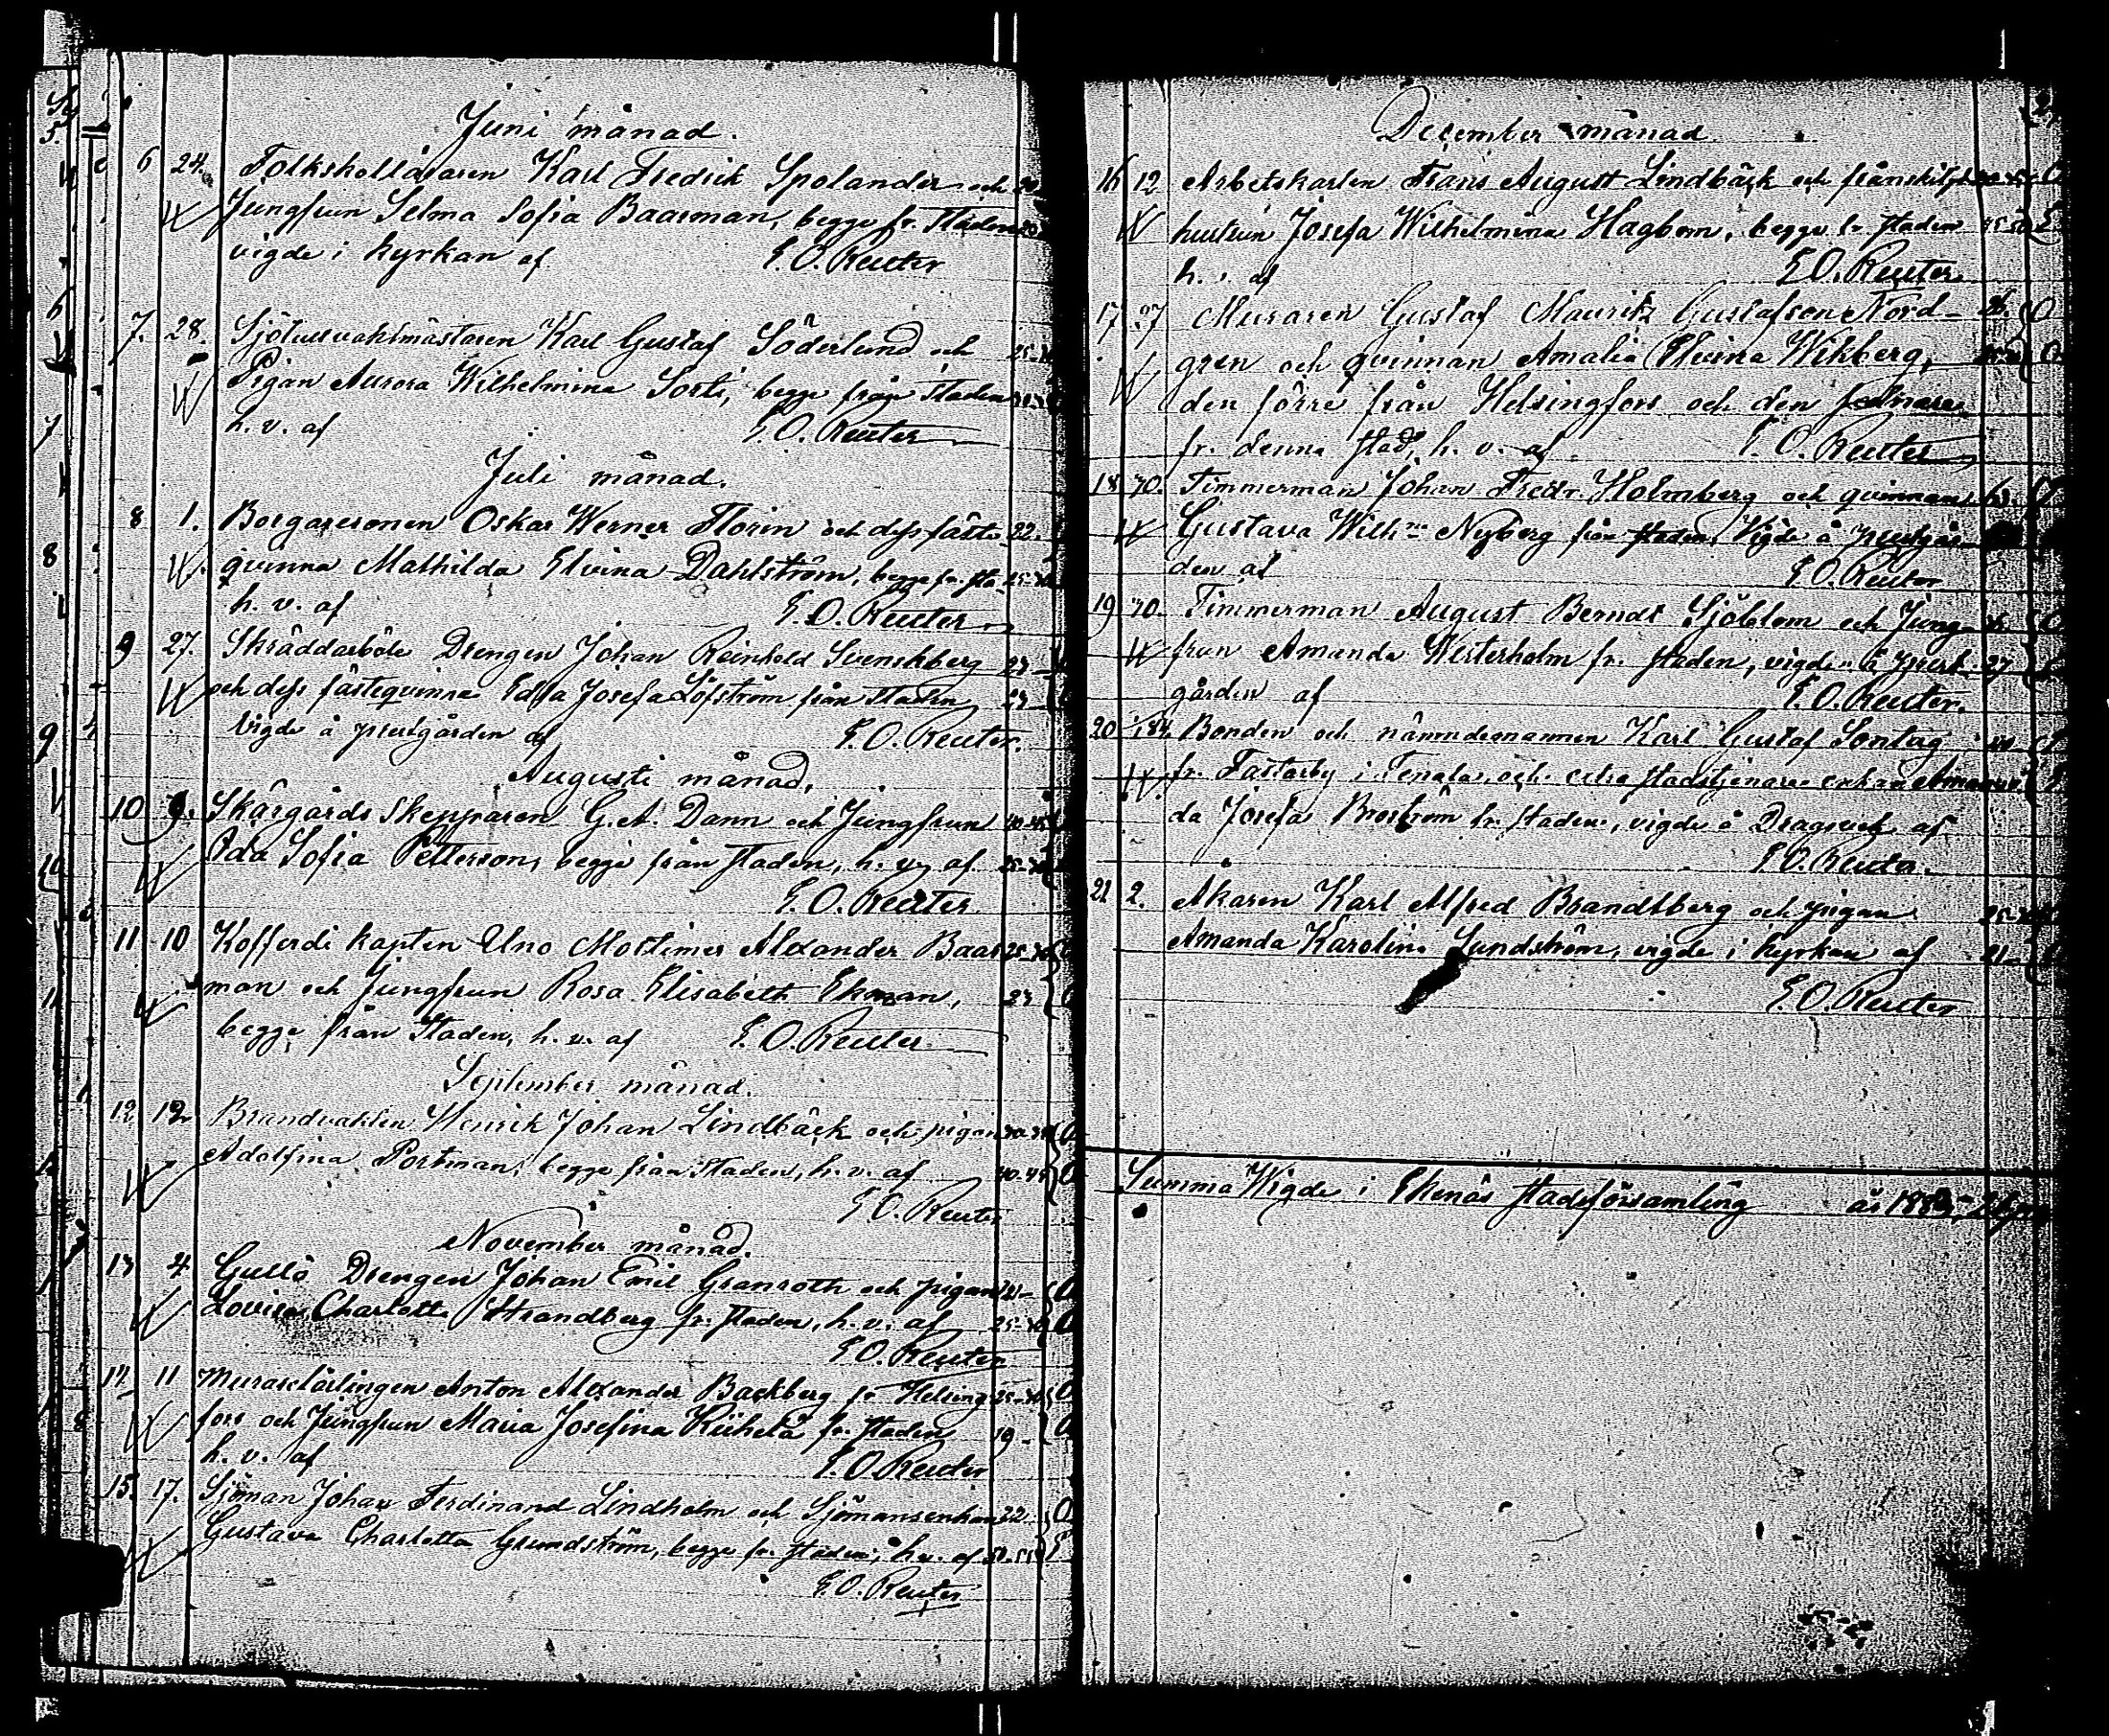 Juni månad.
6 24. Folkskolläraren Karl Fredrik Spolander och
Jungfrun Selma Sofia Baarman, begge fr. staden
vigde i kyrkan af E. O. Reuter
7. 28. Karl Gustaf Söderlund och
Pigan Aurora Wilhelmina begge från staden
h. v. af E. O. Reuter
Juli månad.
8 1. Borgaresonen Oskar Werner Florin och dess fäste- 22
qvinna Mathilda Elvina Dahlström, begge fr. sta- 25-30
h. v. af E. O. Reuter
9 27. Skräddarböle Drengen Johan Reinhold Svenskberg
och dess fästeqvinna Edla Josefa Löfström från staden
Vigde å prestgården af E. O. Reuter.
Augusti månad.
10 9. Skärgårds Skepparen G. A. Dann och Jungfrun
Ida Sofia Pettersson, begge från staden, h. v. af 25-30
E. O. Reuter
11 10 Kofferdi kapten Uno Mortimer Alexander Baar 25-30
man och Jungfrun Rosa Elisabeth Ekman, 23
begge från staden, h. v. af E. O. Reuter
September månad.
12 12 Brandvakten Henrik Johan Lindbäck och pigan
Adolfina Portman, begge från staden, h. v. af 40-45 O
E. O. Reuter
November månad.
13 4 Gullö Drengen Johan Emil Granroth och pigan O
Lovisa Charlotta Strandberg fr. staden, h. v. af 25-30 O
E. O. Reuter
14 11 Murarelärlingen Anton Alexander Backberg fr. Helsing 25-30 O
fors och Jungfrun Maria Josefina fr. staden 19- O
h. v. af E. O. Reuter
15. 17. Sjöman Johan Ferdinand Lindholm och Sjömansenkan 22 O
Gustava Charlotta Grundström, begge fr. staden, h. v. af 50-55 E
E. O. Reuter
December månad.
16 12 Arbetskarlen Frans August Lindbäck och frånskilda O
hustrun Josefa Wilhelmina Hagbom, begge fr. staden
h. v. af E. O. Reuter
17. 27 Muraren Gustaf Mauritz Gustafson Nord- O
gren och qvinnan Amalia Elvina Wikberg, O
den förre från Helsingfors och den sednare
fr. denna stad, h. v. af E. O. Reuter
18 30. Timmerman Johan Fredr. Holmberg och qvinnan
Gustava Wilhna Nyberg från staden, Vigde å prestgår
den af E. O. Reuter
19 30. Timmerman August Berndt Sjöblom och Jung-
frun Amanda Westerholm fr. staden, vigde å prest- 27
gården af E. O. Reuter.
20 Bonden och nämndemannen Karl Gustaf Sontag
fr. Fastarby i Tenala och extra stadstjenare enkan Aman
da Josefa Broström fr. staden, vigde å Dragsvik af
E. O. Reuter.
21 2. Akaren Karl Alfred Brandtberg och pigan
Amanda Karolina Sundström, vigde i kyrkan af 21-
E. O. Reuter
Summa Wigde i Ekenäs stadsförsamling år 1883,